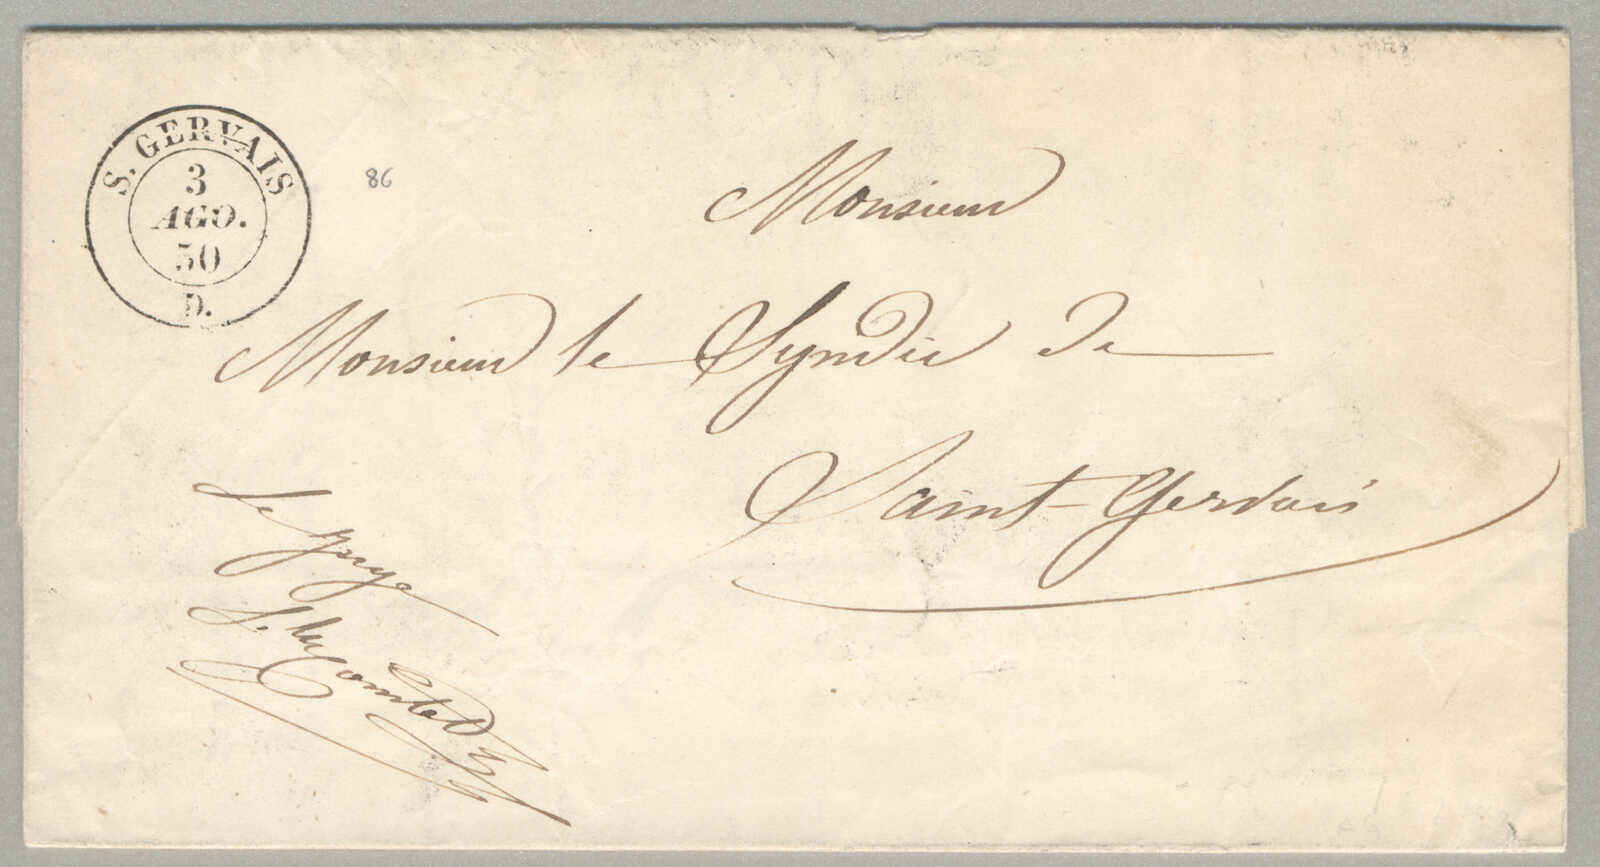 S. GERVAIS
3
AGO.
50
D.
86
Monsieur
Monsieur le Syndic de
Saint-Gervais
Le